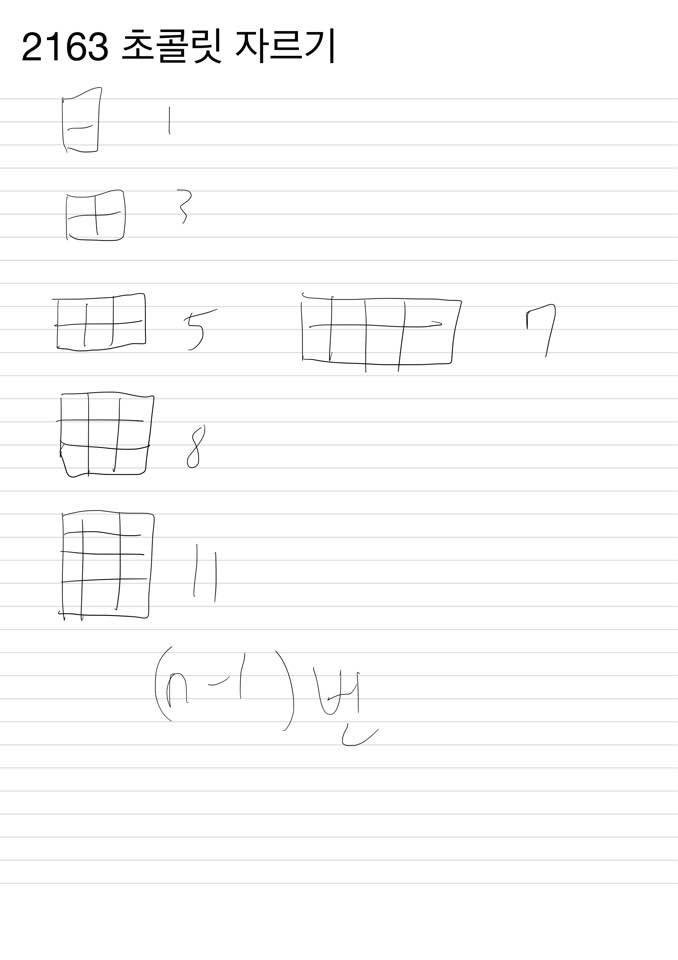 2163 초콜릿 자르기
1
3
5 7
8
11
(n-1)번